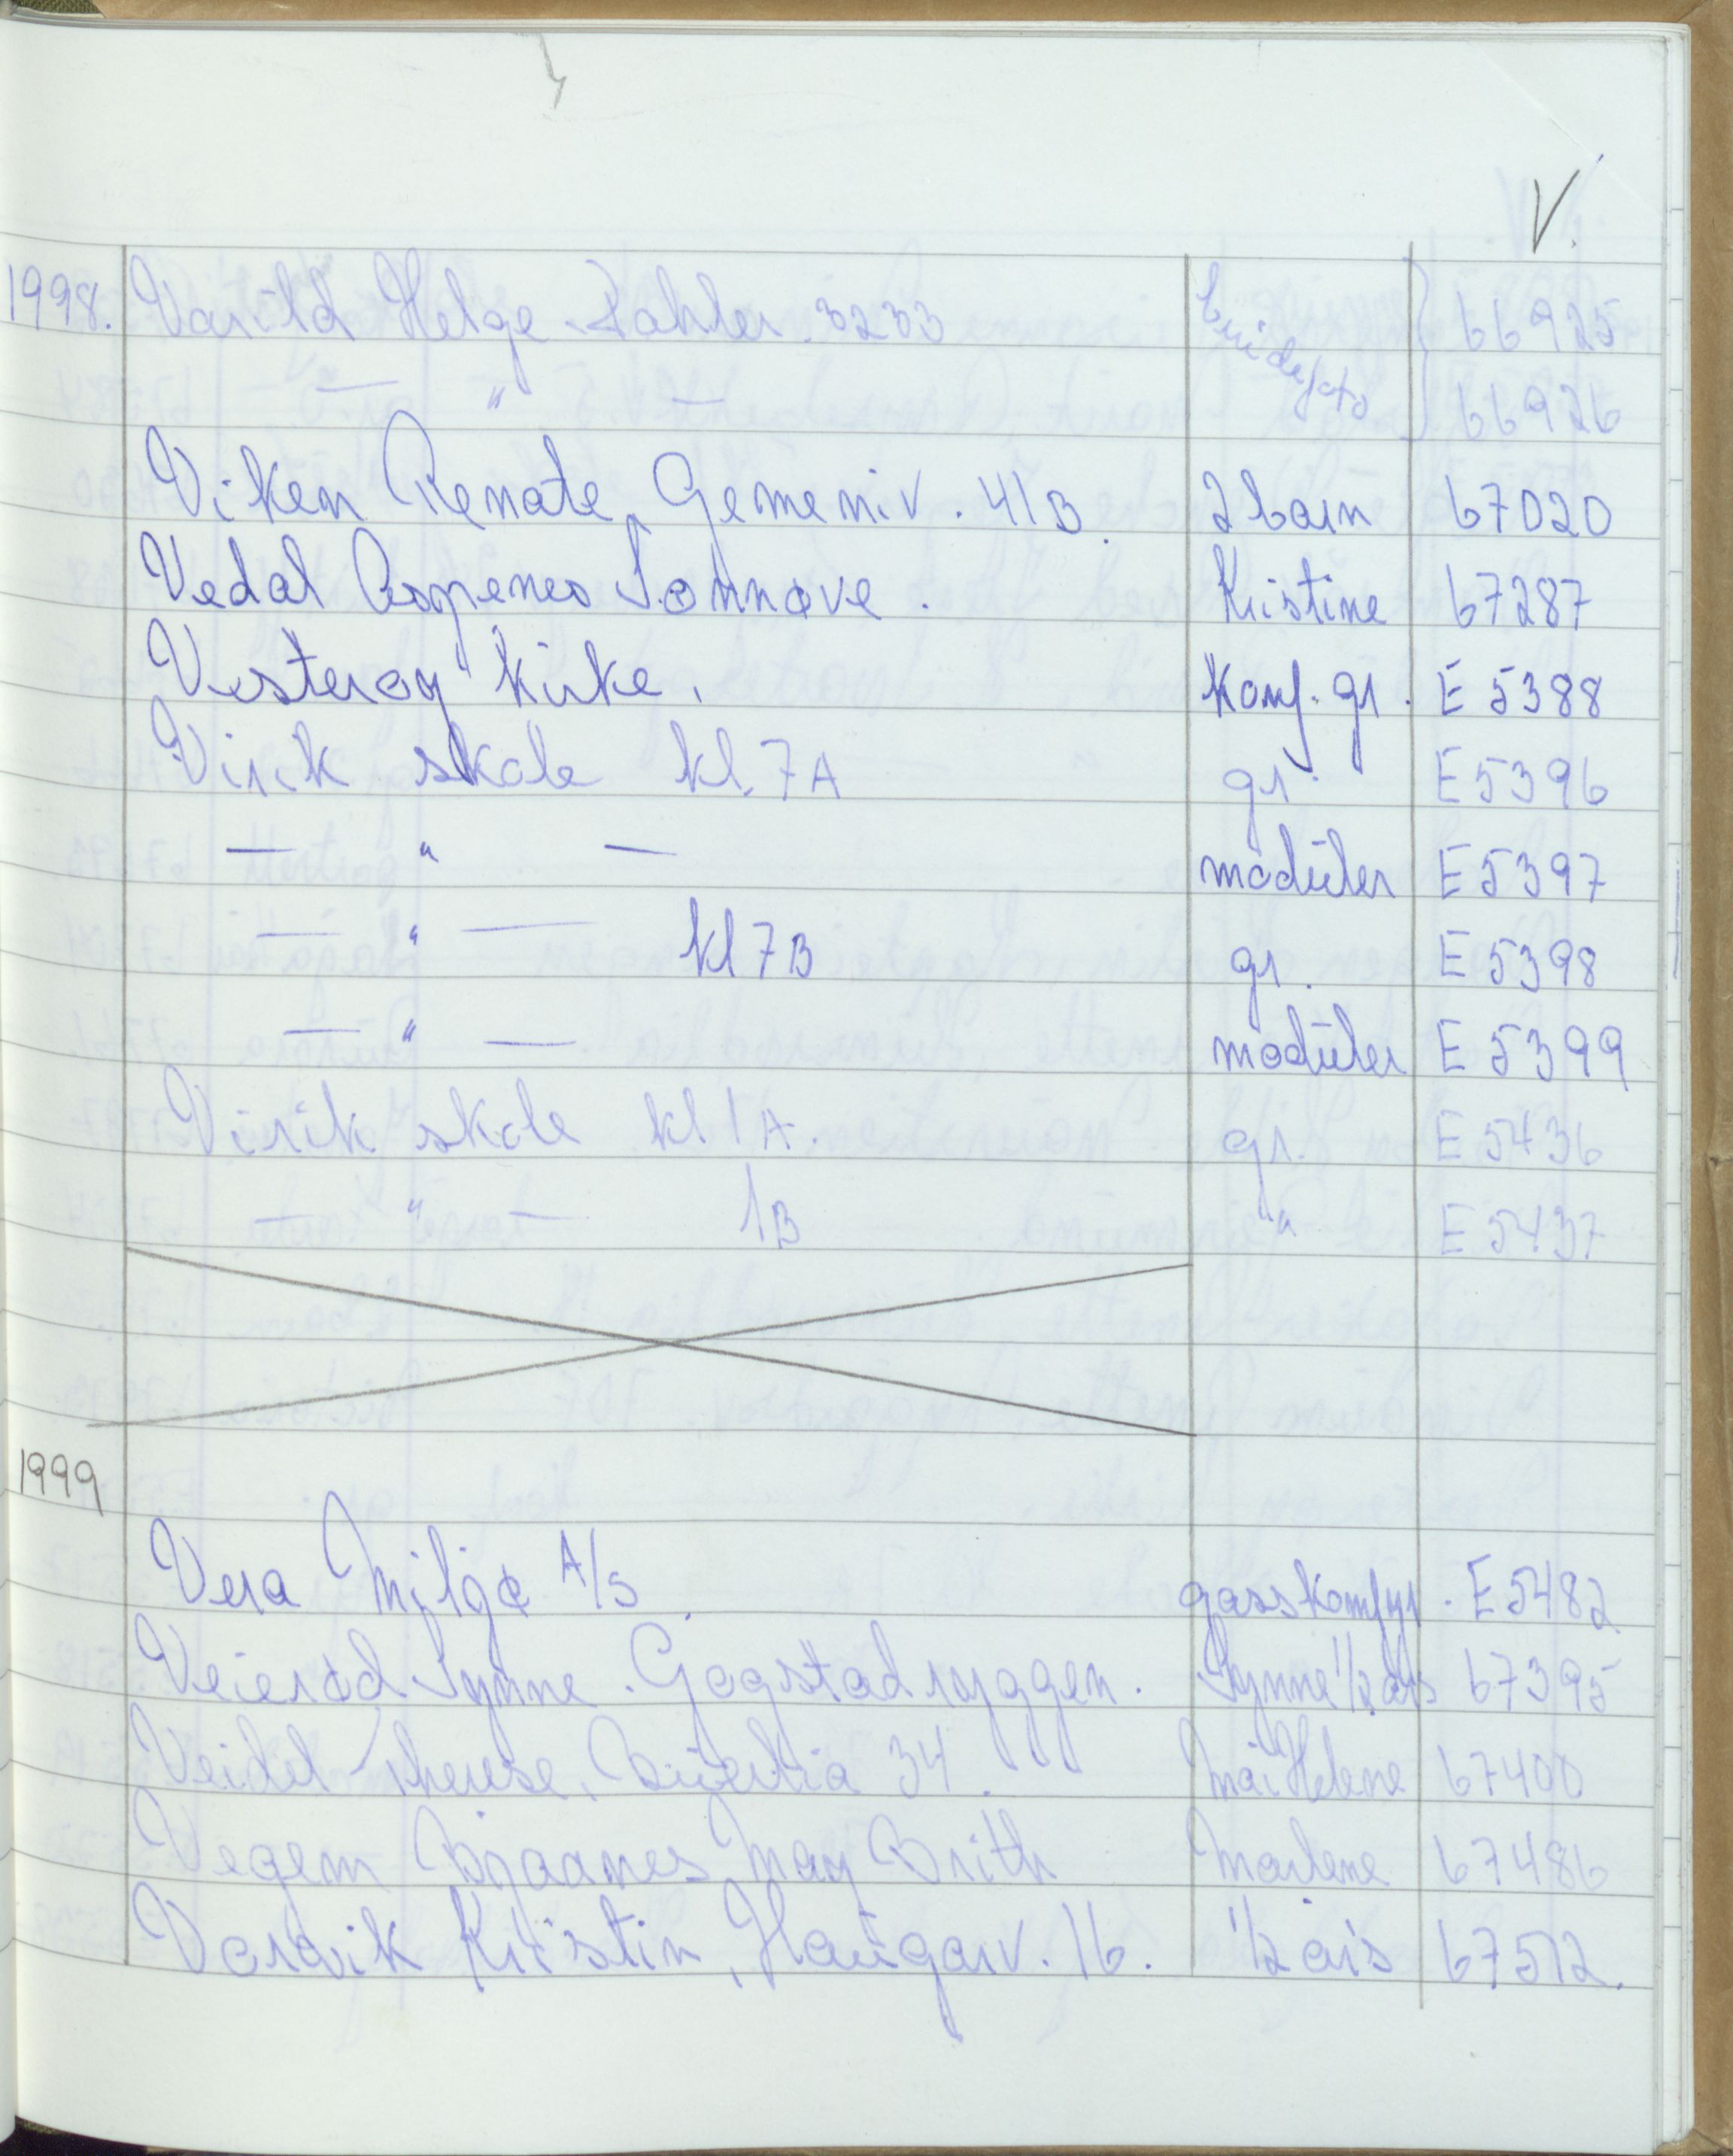 V.
1998. Varild Helge Kahler. 3233 brudefoto 66925
— " — 66926
Viken Renate, Gemeniv. 41B. 2 barn 67020
Vedal Aspenes Sonnøve. Kristine 67287
Vesterøy kirke. Konf. gr. E 5388
Virik skole kl. 7A gr. E 5396
— " — modüler E 5397
— " — kl 7B gr. E 5398
— " — modüler E 5399
Virik skole kl 1A. gr. E 5436
— " — 1B " E 5437
1999
Vera Miljø A/S. gasskomfyr. E 5482
Veierød Synne. Gogstadryggen. Synne 1/2 års 67395
Veidel Therese, 34. Mai Helene 67400
Vegem Bjaanes May Brith Marlene 67486
Vardvik Kristin, Haügarv. 16. 1/2 års 67512.